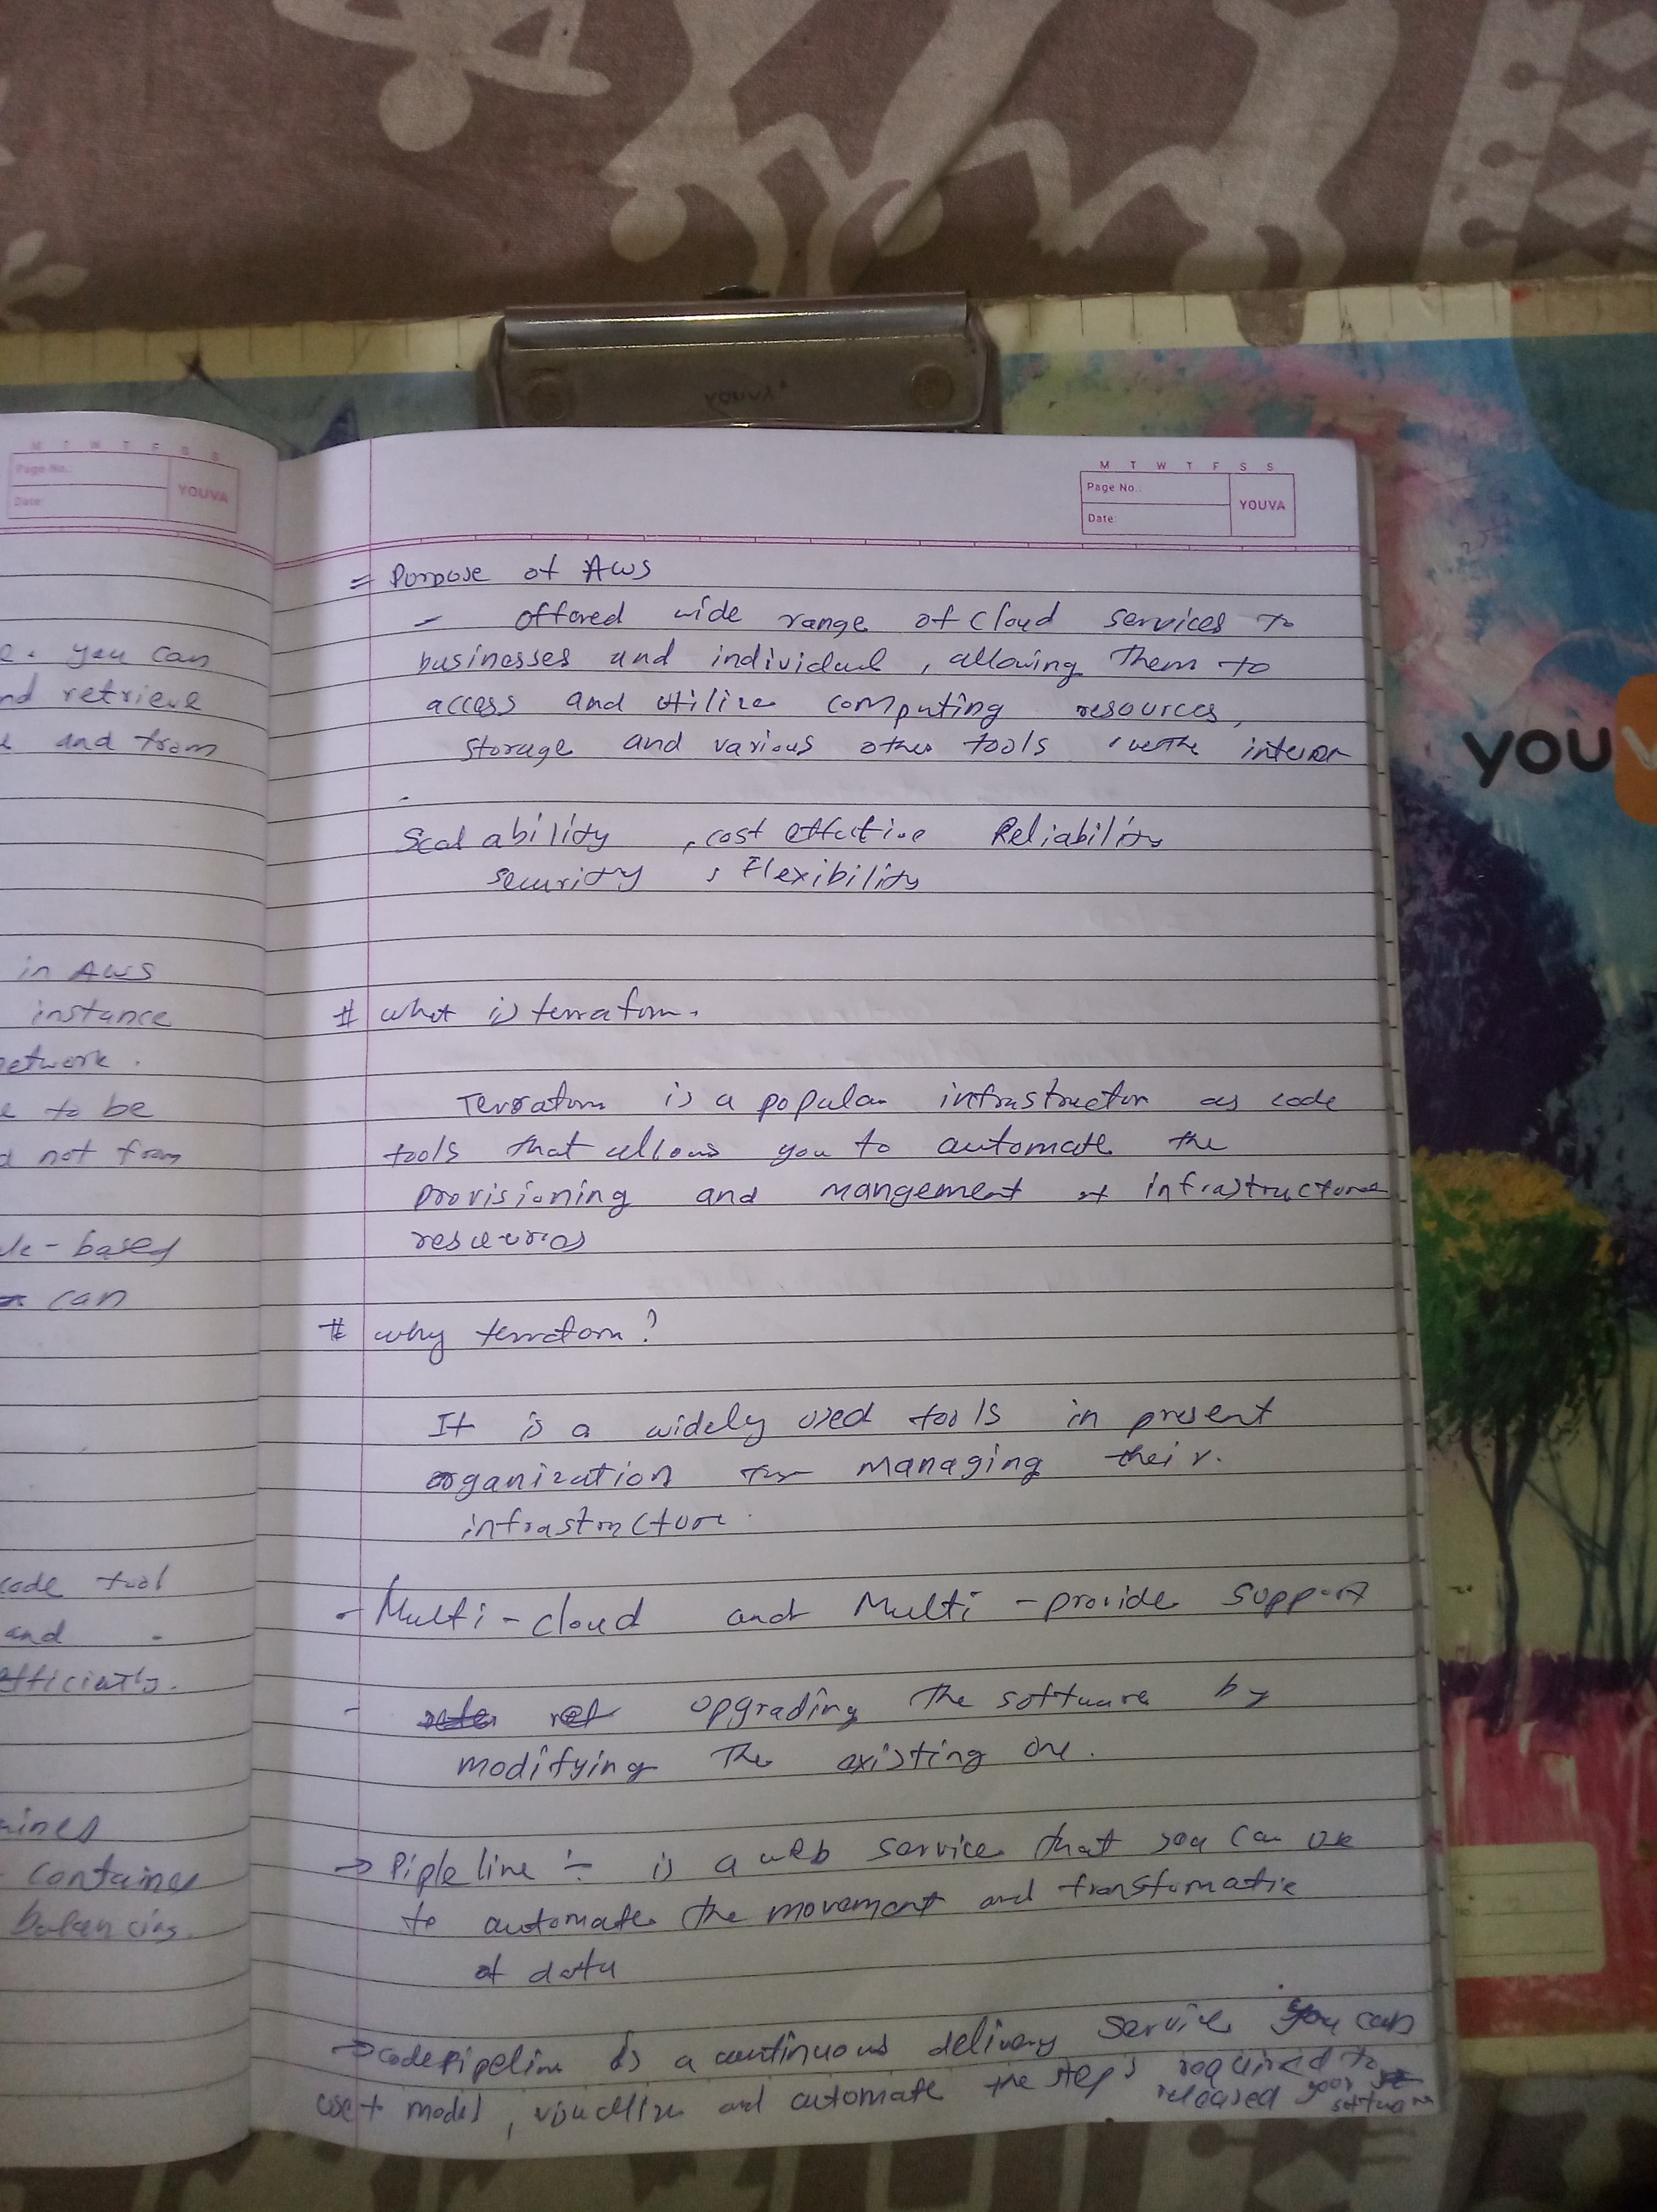 YOUVA
M T W T F S S
Page No.:
Date:
YOUVA
e. you can
nd retrieve
e and from
in AWS
instance
network.
e to be
d not from
le-based
can
code tool
and -
efficiently.
aines
container
balancing.
M T W T F S S
Page No.:
Date:
YOUVA
= Purpose of AWS
- offered wide range of cloud services to
businesses and individual, allowing them to
access and utilize computing resources,
storage and various other tools over the internet
Scalability, cost effective Reliability
security, Flexibility
# what is terraform.
Terraform is a popular infrastructure as code
tools that allows you to automate the
provisioning and mangement of infrastructure
resources
# why terraform?
It is a widely used tools in present
organization for managing their.
infrastructure.
- Multi-cloud and Multi-provider support
- upgrading the software by
modifying the existing one.
→ Pipleline :- is a web service that you can use
to automate the movement and transformation
of data
→ codepipeline is a continuous delivery service you can
use to model, visualize and automate the steps required to
released your software
YOUV
No.